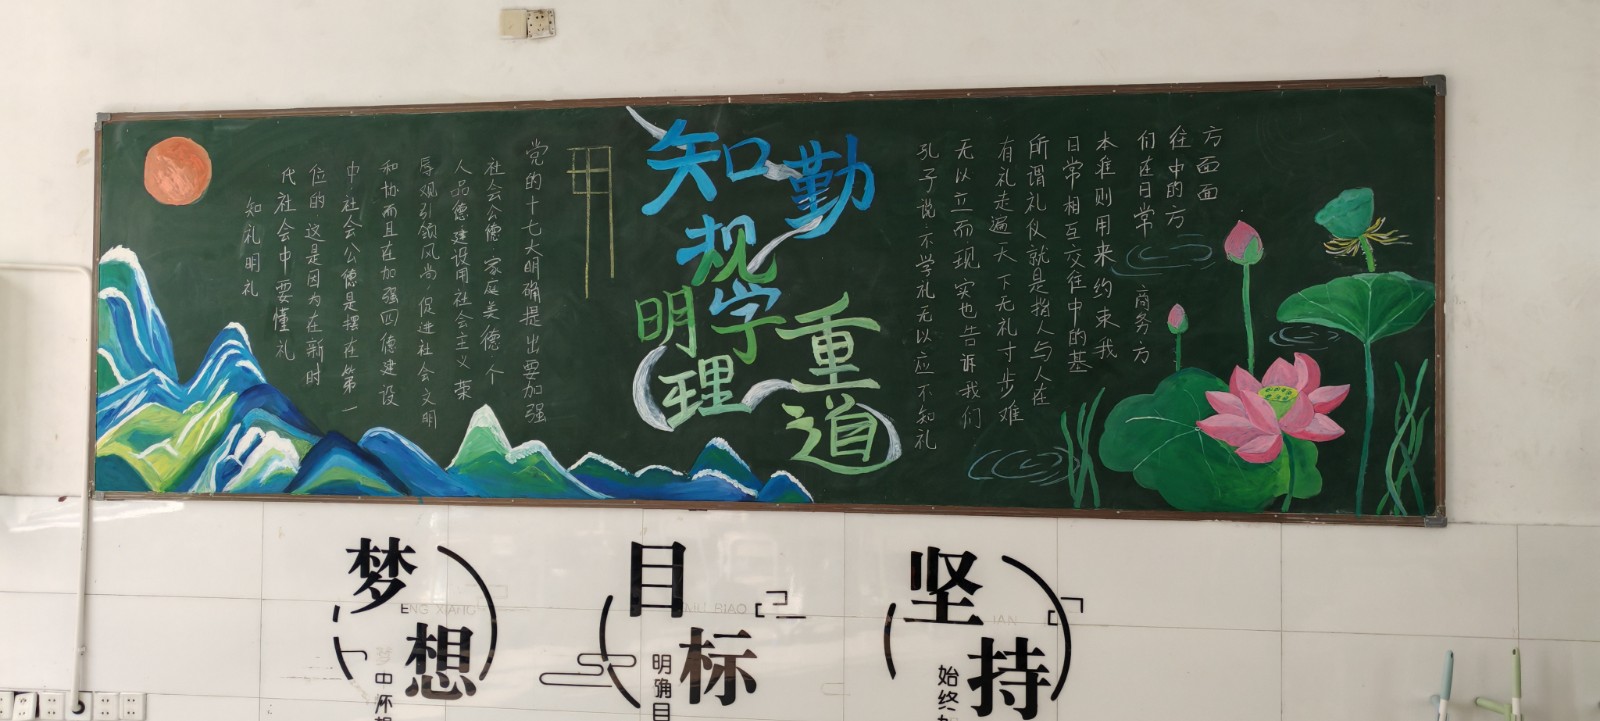 知规明理
勤学重道
党的十七大明确提出要加强
社会公德 家庭美德 个
人品德建设用社会主义荣
辱观引领风尚，促进社会文明
和协而且在加强四德建设
中社会公德是摆在第一
位的 这是因为在新时
代社会中要懂礼
知礼明礼
孔子说不学礼无以应不知礼
无以立而现实也告诉我们
有礼走遍天下无礼寸步难
所谓礼仪就是指人与人在
日常相互交往中的基
本准则用来约束我
们在日常 商务方
往中的方
方面面
梦想
ENG XIANG
梦中怀
目标
BIAO
明确目
坚持
始终